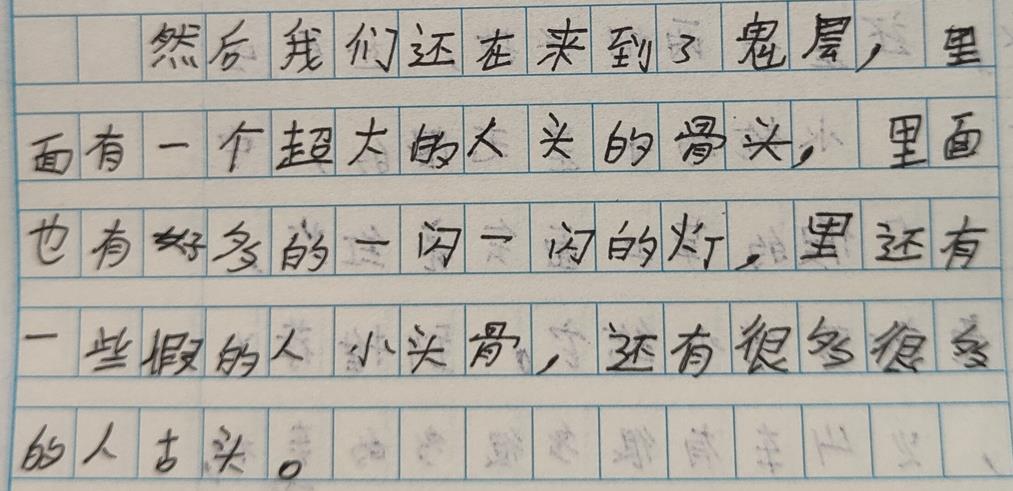 然后我们还在来到了鬼层，里
面有一个超大的人头的骨头，里面
也有好多的一闪一闪的灯，里还有
一些假的人小头骨，还有很多很多
的人古头。